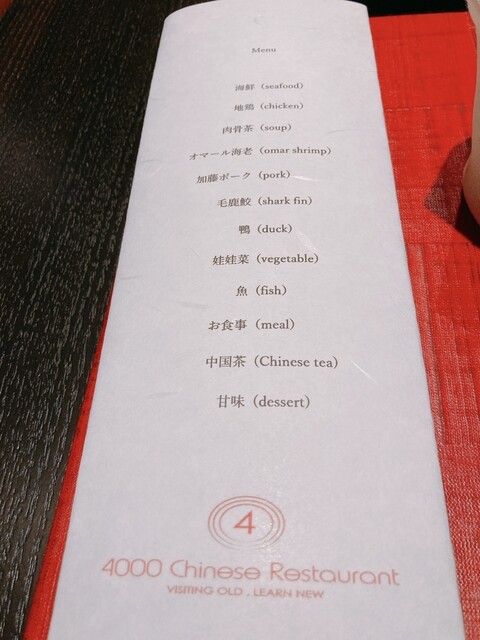 Menu
海鮮（seafood）
地鶏（chicken）
肉骨茶（soup）
オマール海老（omar shrimp）
加藤ポーク（pork）
毛鹿鮫（shark fin）
鴨（duck）
娃娃菜（vegetable）
魚（fish）
お食事（meal）
中国茶（Chinese tea）
甘味（dessert）
4
4000 Chinese Restaurant
VISITING OLD . LEARN NEW